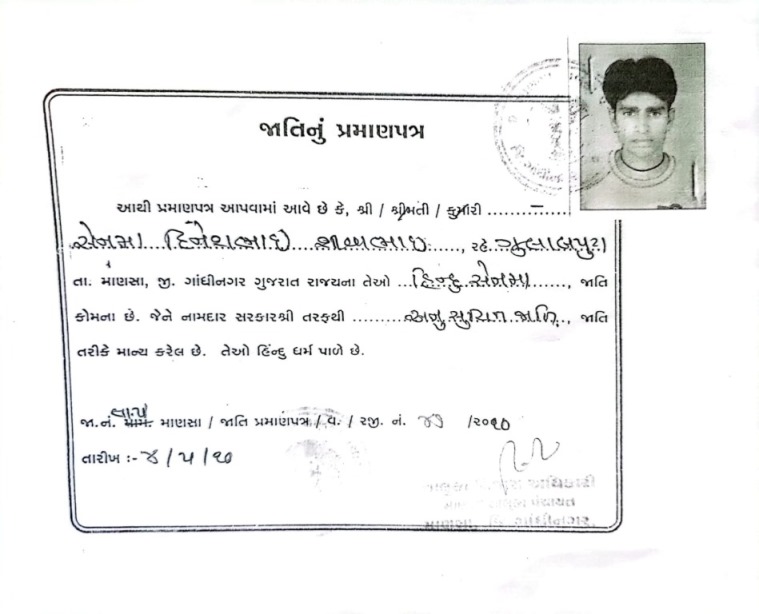 જાતિનું પ્રમાણપત્ર
આથી પ્રમાણપત્ર આપવામાં આવે છે કે, શ્રી / શ્રીમતી / કુમારી ..............
સેનમા દિનેશભાઇ ......, રહે. ગુલાબપુરા
તા. માણસા, જી. ગાંધીનગર ગુજરાત રાજ્યના તેઓ ...હિન્દુ સેનમા......, જાતિ
કોમના છે. જેને નામદાર સરકારશ્રી તરફથી .........અનુસુચિત જાતિ..., જાતિ
તરીકે માન્ય કરેલ છે. તેઓ હિંદુ ધર્મ પાળે છે.
જા.નં. માણસા / જાતિ પ્રમાણપત્ર / વ. / રજી. નં. /૨૦૧૦
તારીખ :- ૪/૫/૧૦